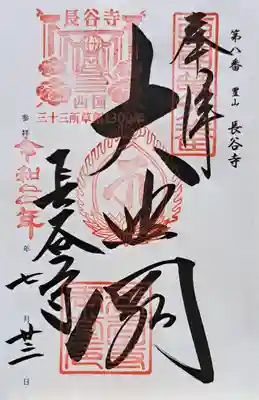 第八番 豊山 長谷寺
奉拝
大悲閣
長谷寺
長谷寺
西国
三十三所草創1300年
参拝
令和二年
年 七 月 廿三 日